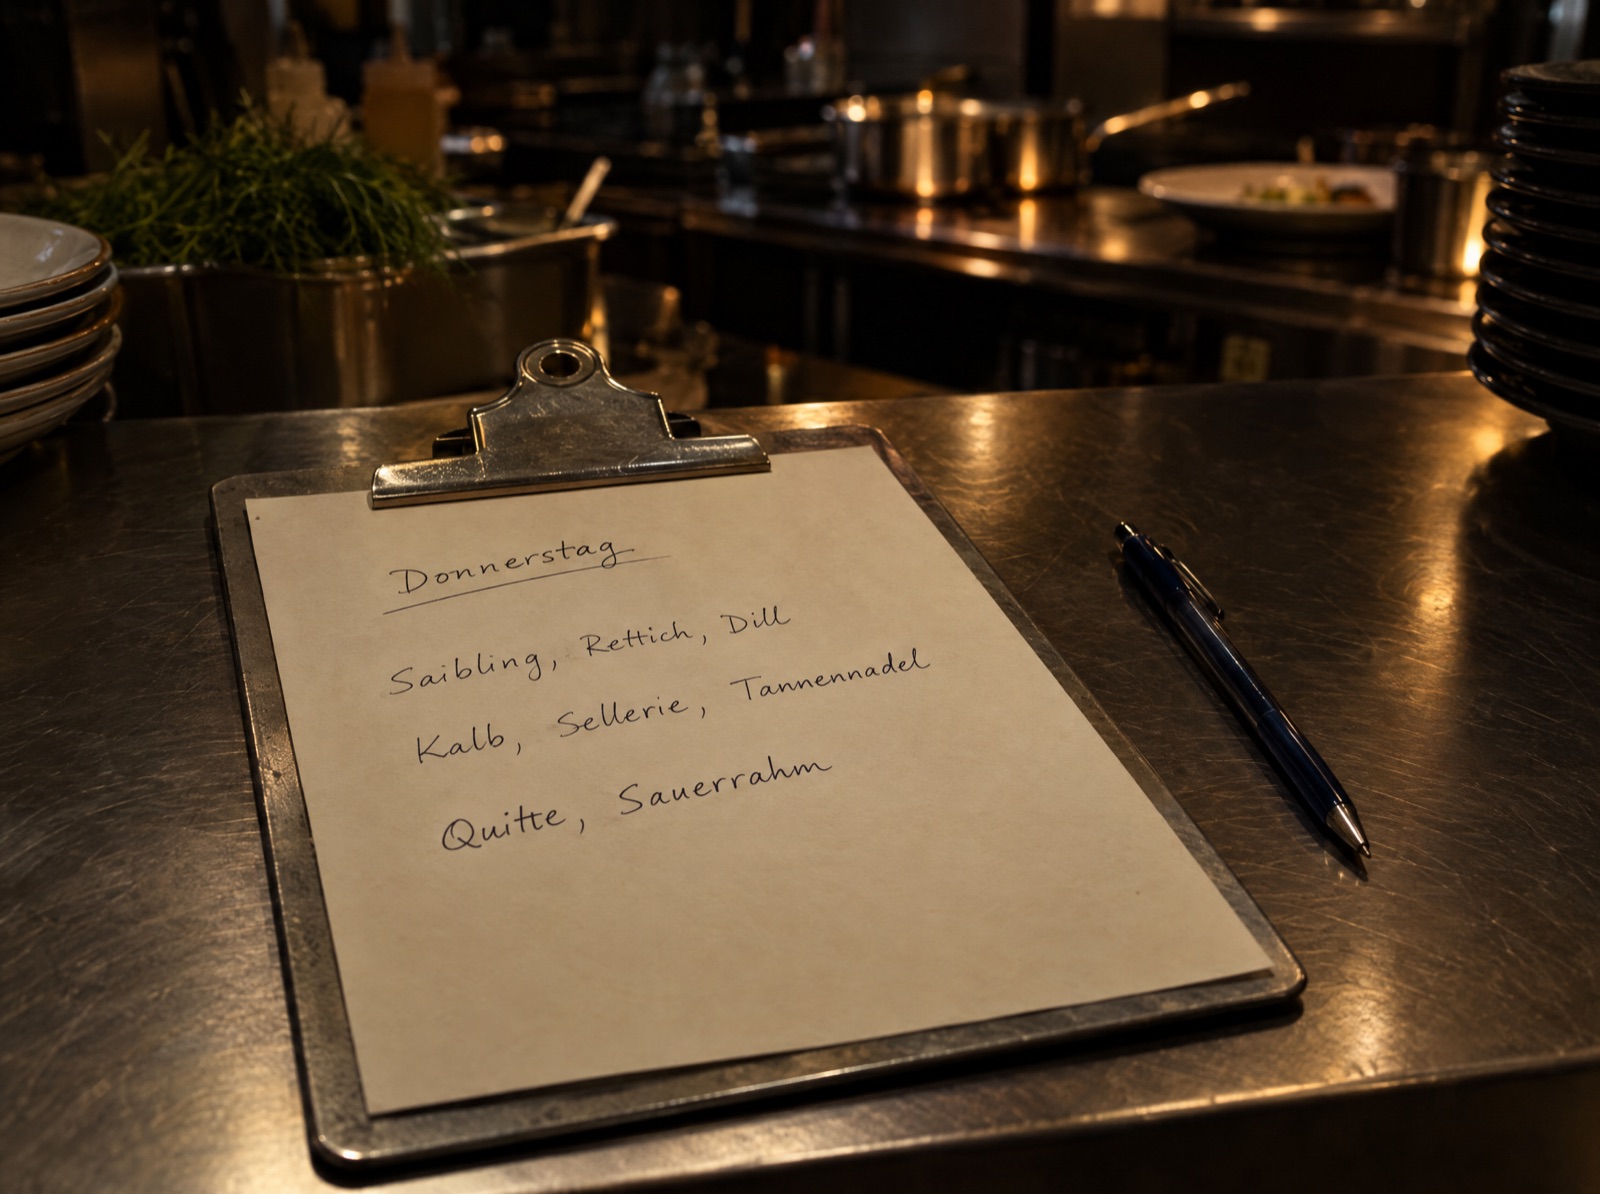 Donnerstag
Saibling, Rettich, Dill
Kalb, Sellerie, Tannennadel
Quitte, Sauerrahm